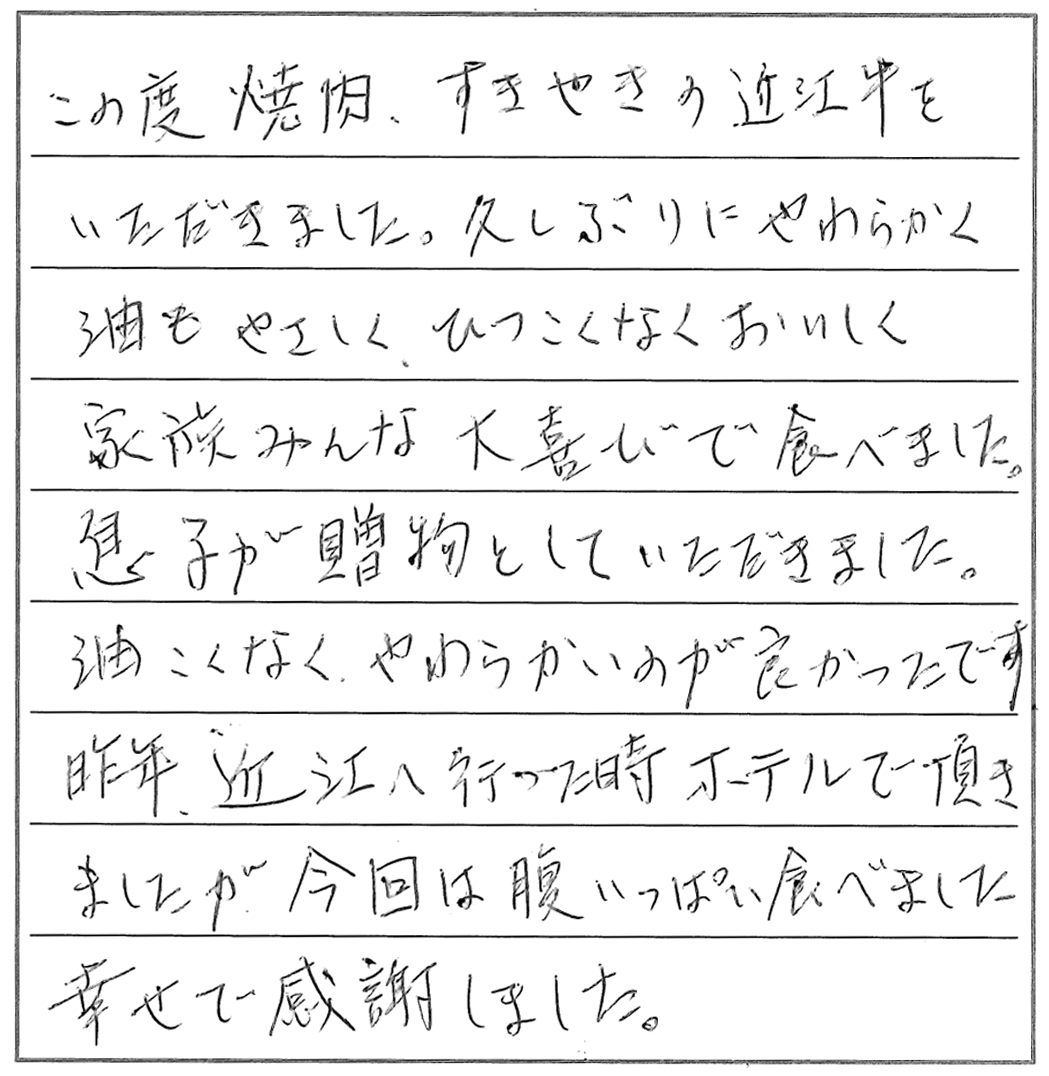 この度焼肉、すきやきの近江牛を
いただきました。久しぶりにやわらかく
油もやさしく、ひつこくなくおいしく
家族みんな大喜びで食べました。
息子が贈物としていただきました。
油こくなく、やわらかいのが良かったです
昨年、近江へ行った時ホテルで頂き
ましたが、今回は腹いっぱい食べました
幸せで感謝しました。